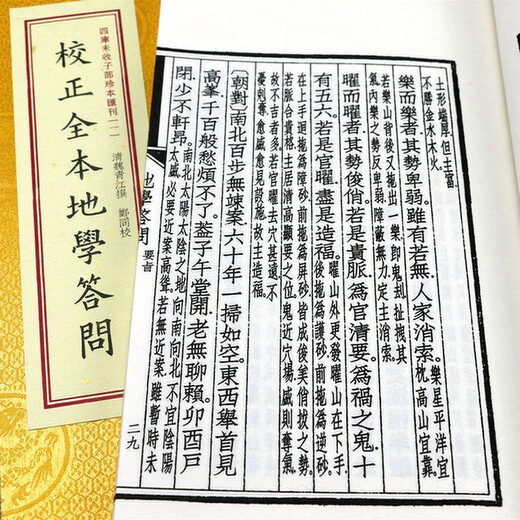 四庫未收子部珍本匯刊(一一)
校正全本地學答問
清魏青江撰　鄭同校
土形端厚.但主富.
不勝金水木火.
樂而樂者其勢卑弱.雖有若無.人家消索.
樂星平洋宜
枕高山宜靠.
若樂山背後又拖出一樂.即鬼刦扯拽其
氣.內樂之勢反卑弱.障蔽無力.定主消索.
曜而曜者其勢俊俏.若是貴脈.爲官清要.爲禍之鬼.十
有五六.若是官曜.盡是造福.
曜山外更發曜.山在下手.
後拖爲護砂.前拖爲逆砂.
在上手迴拖爲障砂.前拖爲屏砂.皆成後俏拔之勢.
若脈合貴格.主居清高顯要之位.鬼近穴場.威則奪氣
故不吉者多.若官曜去穴甚遠.不
憂剋奪.愈威愈見設施.故主造福.
〔朝對〕南北百步無竦案.六十年一掃如空.東西舉首見
高峯.千百般愁煩不了.葢子午堂開.老無聊賴.卯酉戶
閉.少不軒昂.
南北太陽太陰之地.向南向北.不宜陰陽
太威.必要近案高聳.若無近案.雖暫時未
地學答問
要旨
二九